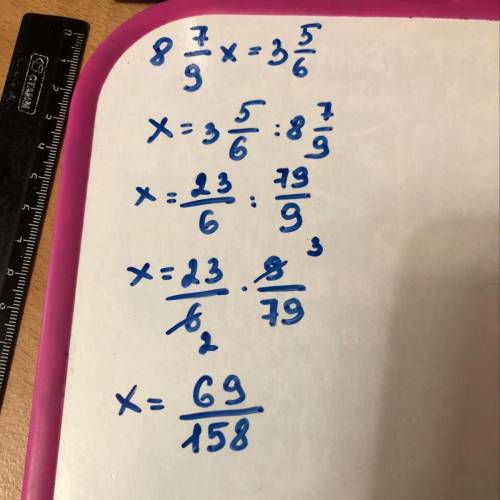 8 7/9 x = 3 5/6
x = 3 5/6 : 8 7/9
x = 23/6 : 79/9
x = 23/6 · 9/79
3
2
x = 69/158